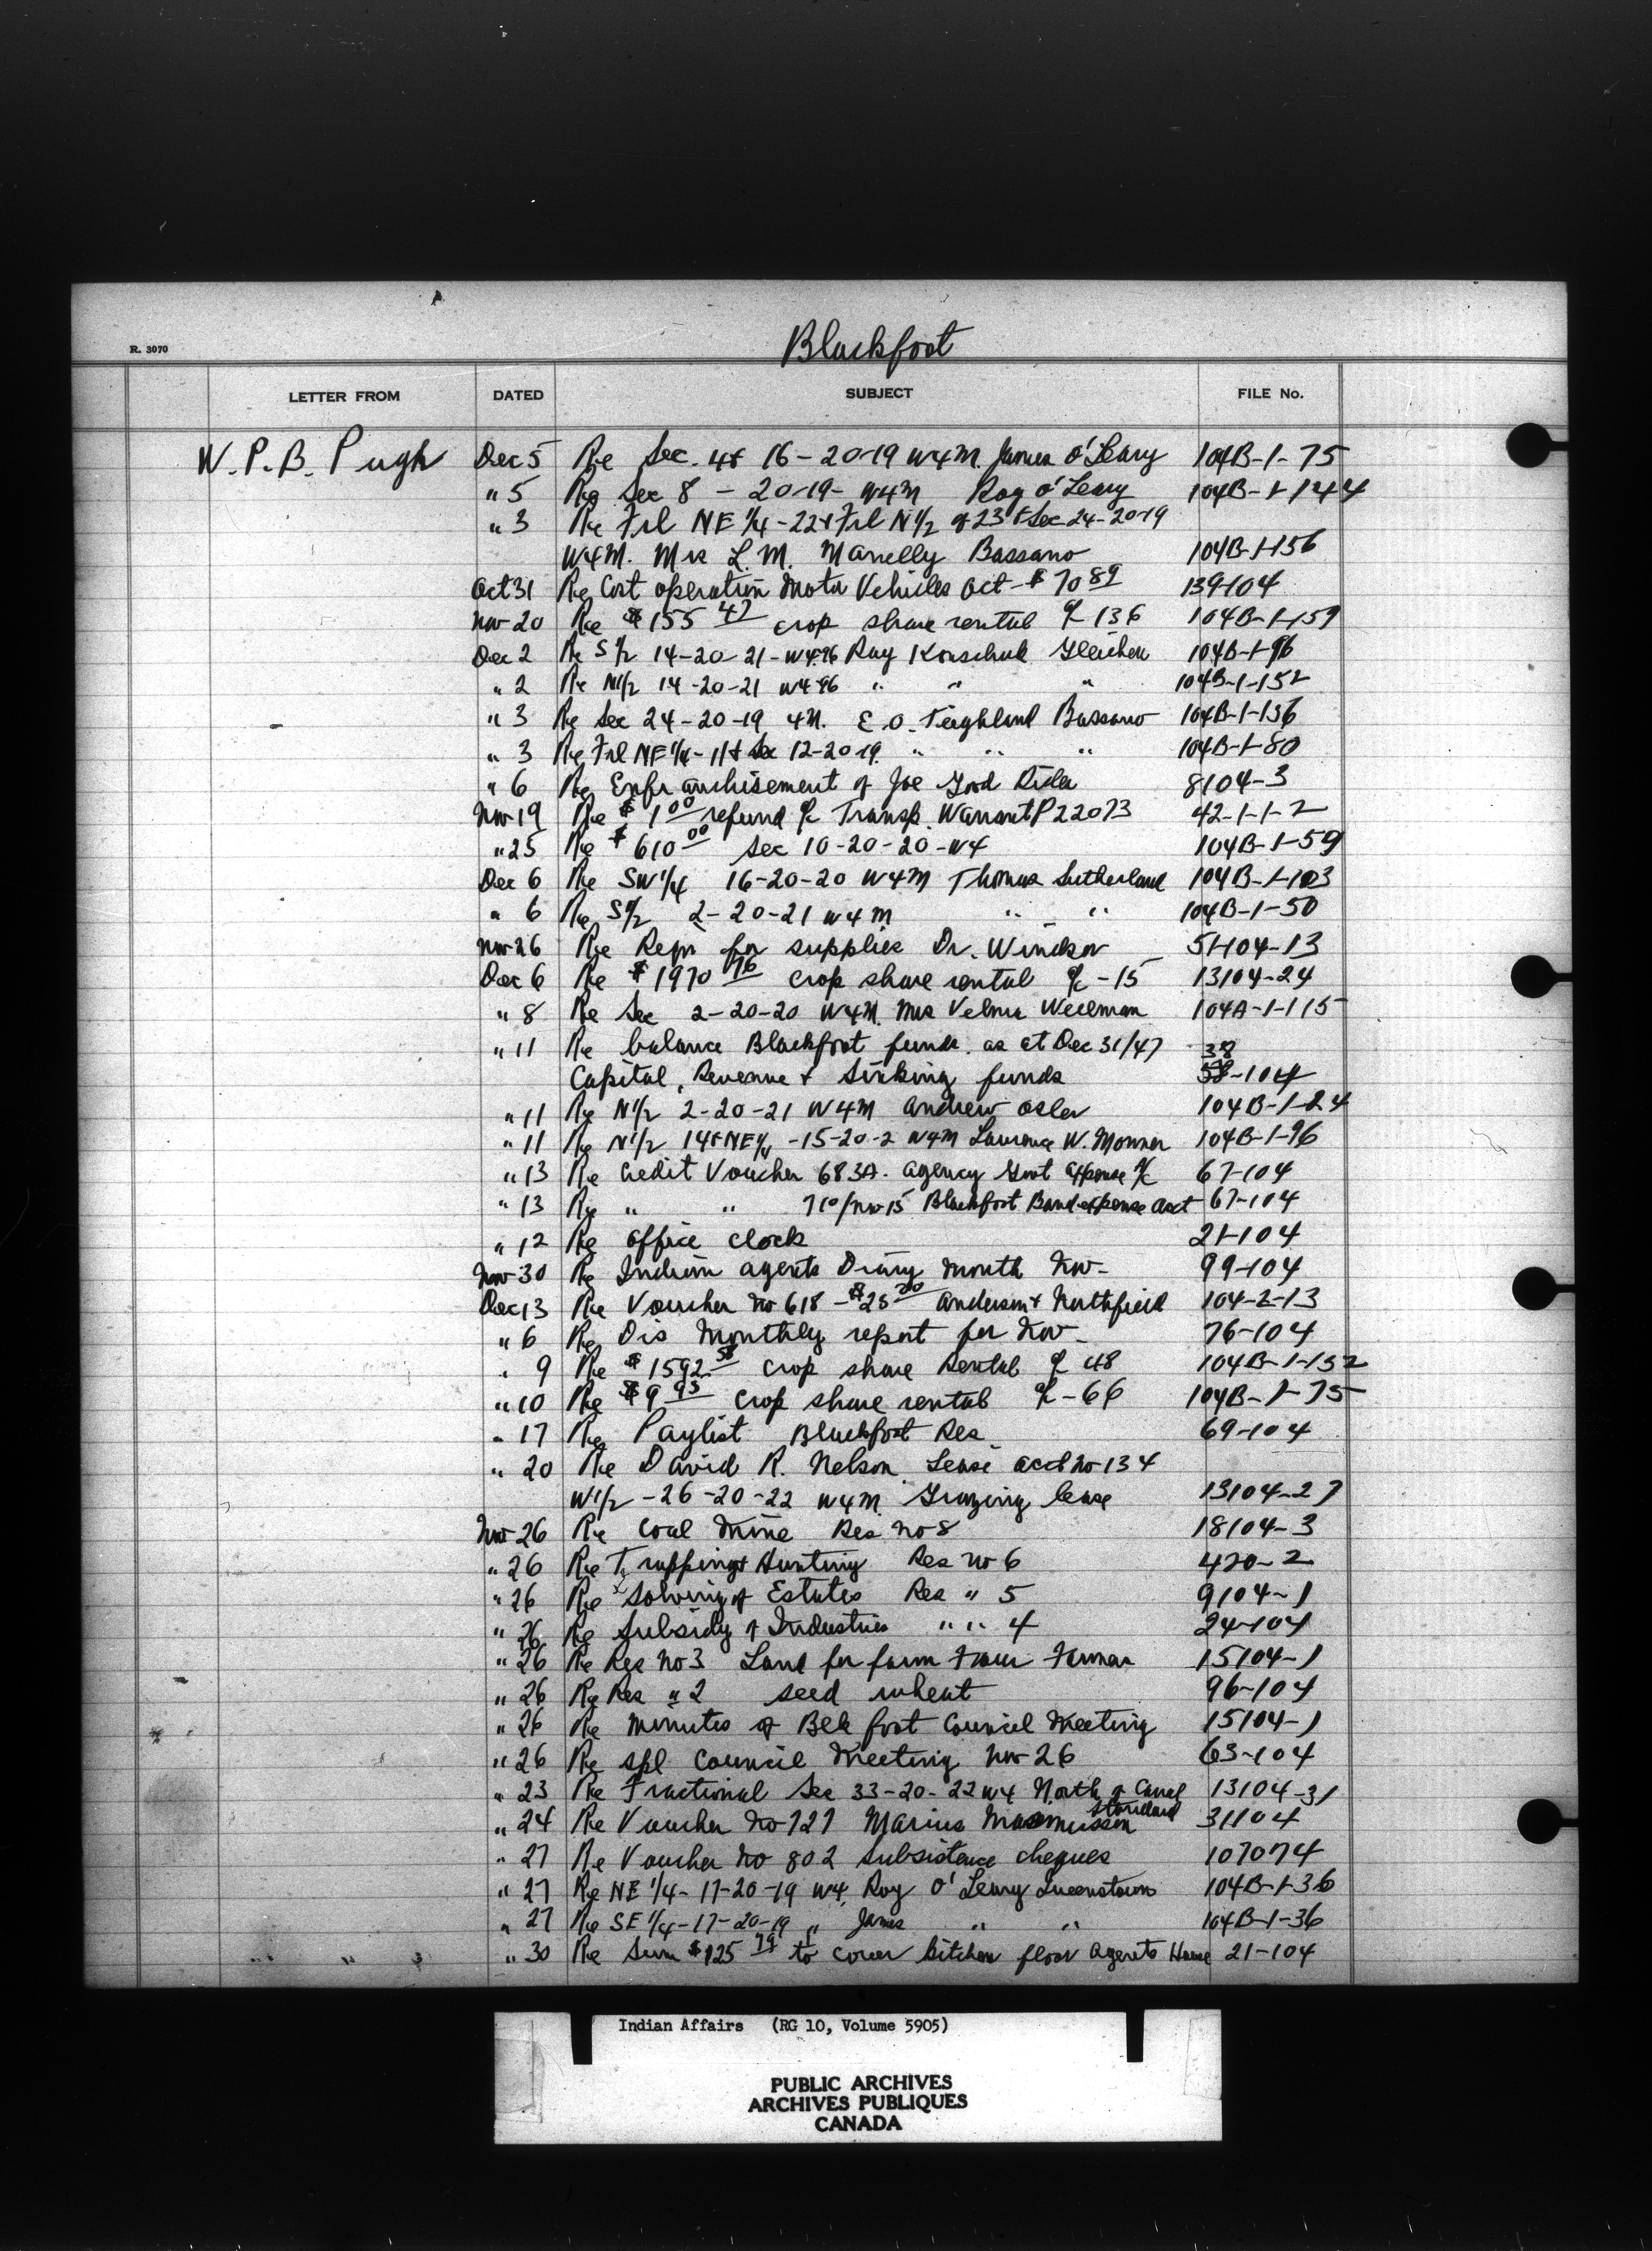 Blackfoot
R. 3070
LETTER FROM DATED SUBJECT FILE No.
W. P. B. Pugh Dec 5 Re Sec. 4 & 16-20-19 W4M. James O'Leary 104B-1-75
" 5 Re Sec 8 - 20-19- W4M Roy O'Leary 104B-1-144
" 3 Re Frl NE 1/4 - 22 & Frl N 1/2 of 23 & Sec 24-20-19
W4M. Mrs L. M. Manelly Bassano 104B-1-156
Oct 31 Re Cost operation Motor Vehicles Oct - $70 89 139-104
Nov 20 Re $155 47 crop share rental a/c 136 104B-1-159
Dec 2 Re S 1/2 14-20-21-W4 96 Ray Korschuk Gleichen 104B-1-96
" 2 Re N 1/2 14-20-21 W4 96 " " " 104B-1-152
" 3 Re Sec 24-20-19 4M. E. O. Bassano 104B-1-136
" 3 Re Frl NE 1/4 - 11 & Sec 12-20-19. " " " 104B-1-80
" 6 Re Enfranchisement of Joe Good Rider 8104-3
Nov 19 Re $1 00 refund a/c Transp. Warrant P22073 42-1-1-2
" 25 Re $610 00 Sec 10-20-20-W4 104B-1-59
Dec 6 Re SW 1/4 16-20-20 W4M Thomas Sutherland 104B-1-103
" 6 Re S 1/2 2-20-21 W4M " " 104B-1-50
Nov 26 Re Reqn for supplies Dr. Windsor 51-104-13
Dec 6 Re $1970 76 crop share rental a/c -15 13104-24
" 8 Re Sec 2-20-20 W4M. Mrs Velma 104A-1-115
" 11 Re balance Blackfoot funds as at Dec 31/47 38
Capital, Revenue & Sinking funds 58-104
" 11 Re N 1/2 2-20-21 W4M Andrew Osler 104B-1-24
" 11 Re N 1/2 14 & NE 1/4 -15-20-2 W4M Lawrence W. 104B-1-96
" 13 Re Credit Voucher 683A. Agency Govt Expense a/c 67-104
" 13 Re " " 710/Nov 15 Blackfoot Band expense acct 67-104
" 12 Re office clock 21-104
Nov 30 Re Indian agents Diary month Nov- 99-104
Dec 13 Re Voucher No 618 - $25 00 Anderson & Northfield 104-2-13
" 6 Re Dis Monthly report for Nov- 76-104
" 9 Re $1592 58 crop share Rental a/c 48 104B-1-132
" 10 Re $9 95 crop share rental a/c -66 104B-1-75
" 17 Re Paylist Blackfoot Res 69-104
" 20 Re David R. Nelson Lease acct No 134
W 1/2 -26-20-22 W4M Grazing lease 13104-27
Nov 26 Re Coal Mine Res No 8 18104-3
" 26 Re Trapping & Hunting Res No 6 420-2
" 26 Re Solving of Estates Res " 5 9104-1
" 26 Re Subsidy of Industries " " 4 24-104
" 26 Re Res No 3 Land for farm 15104-1
" 26 Re Res " 2 seed wheat 96-104
" 26 Re minutes of Blk foot Council Meeting 15104-1
" 26 Re spl Council Meeting Nov 26 63-104
" 23 Re Fractional Sec 33-20-22 W4 North of Canal 13104-31
" 24 Re Voucher No 727 Marius Standard 31104
" 27 Re Voucher No 802 Subsistence cheques 107074
" 27 Re NE 1/4 - 17-20-19 W4 Roy O'Leary Queenstown 104B-1-36
" 27 Re SE 1/4 - 17-20-19 " James " " 104B-1-36
" 30 Re Sum $125 79 to cover kitchen floor Agents House 21-104
Indian Affairs (RG 10, Volume 5905)
PUBLIC ARCHIVES
ARCHIVES PUBLIQUES
CANADA